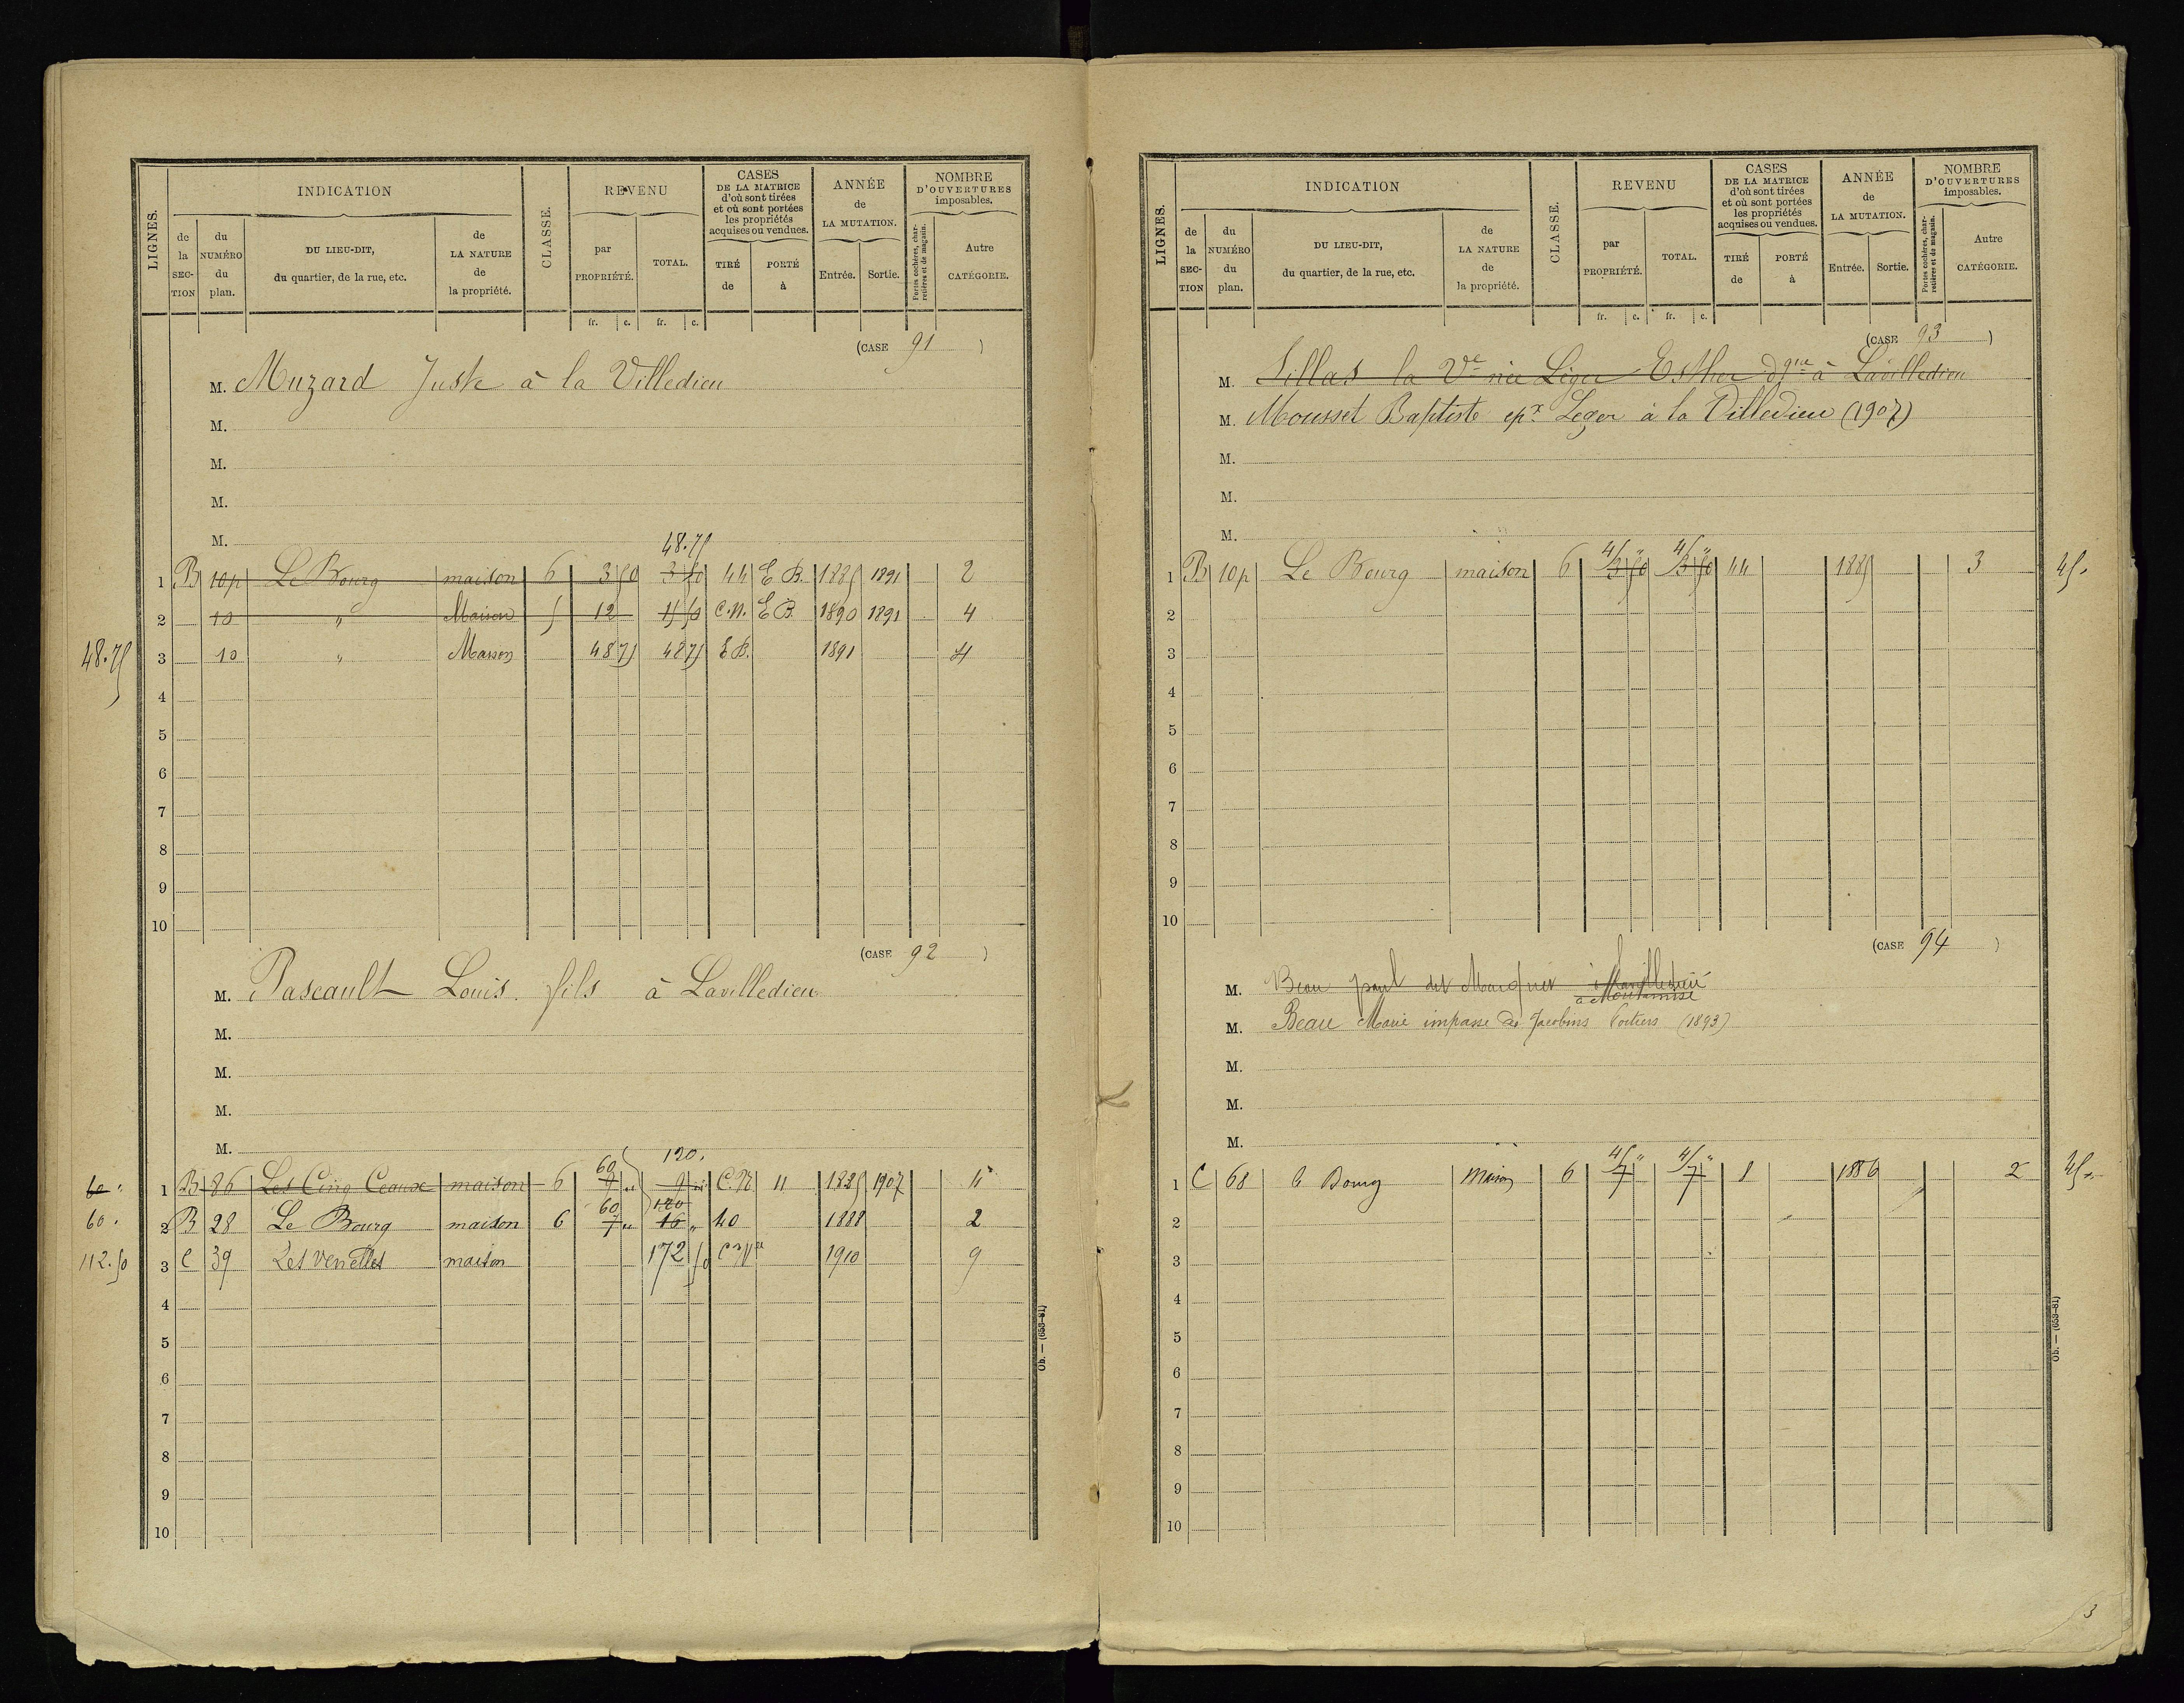 LIGNES.
INDICATION
de la SECTION
du NUMÉRO du plan.
DU LIEU-DIT, du quartier, de la rue, etc.
de LA NATURE de la propriété.
CLASSE.
REVENU
par PROPRIÉTÉ.
TOTAL.
CASES DE LA MATRICE d'où sont tirées et où sont portées les propriétés acquises ou vendues.
TIRÉ de
PORTÉ à
ANNÉE de LA MUTATION.
Entrée.
Sortie.
NOMBRE D'OUVERTURES imposables.
Portes cochères, charretières et de magasin.
Autre CATÉGORIE.
fr. c. fr. c.
(CASE 91 )
M. Muzard Juste à la Villedieu
M.
M.
M.
M.
48.75
1 B 10p Le Bourg maison 6 3 50 3 50 44 E B. 1885 1891 2
2 10 " Maison 5 12 15 50 C.N. E B. 1890 1891 4
48.75 3 10 " Maison 48 75 48 75 E B. 1891 4
4
5
6
7
8
9
10
(CASE 92 )
M. Pascault Louis fils à Lavilledieu
M.
M.
M.
M.
60 120.
60 " 1 B 86 Les Cinq Ceaux maison 6 9 " 9 " C.N 11 1885 1907 4
60 120
60 . 2 B 28 Le Bourg maison 6 7 " 16 " 40 1888 2
112.50 3 C 39 Les Venelles maison 172 50 1910 9
4
5
6
7
8
9
10
Ob. — (653-81)
LIGNES.
INDICATION
de la SECTION
du NUMÉRO du plan.
DU LIEU-DIT, du quartier, de la rue, etc.
de LA NATURE de la propriété.
CLASSE.
REVENU
par PROPRIÉTÉ.
TOTAL.
CASES DE LA MATRICE d'où sont tirées et où sont portées les propriétés acquises ou vendues.
TIRÉ de
PORTÉ à
ANNÉE de LA MUTATION.
Entrée.
Sortie.
NOMBRE D'OUVERTURES imposables.
Portes cochères, charretières et de magasin.
Autre CATÉGORIE.
fr. c. fr. c.
(CASE 93 )
M. la Ve née Léger Esther à Lavilledieu
M. Mousset Baptiste epx Leger à la Villedieu (1907)
M.
M.
M.
45 " 45 "
1 B 10p Le Bourg maison 6 3 50 3 50 44 1885 3 45.
2
3
4
5
6
7
8
9
10
(CASE 94 )
M. Beau paul à Lavilledieu
M. Beau Marie impasse des Jacobins Poitiers (1893)
M.
M.
M.
45 " 45 "
1 C 68 le Bourg Maison 6 7 7 1 1886 2 45 "
2
3
4
5
6
7
8
9
10
Ob. — (653-81)